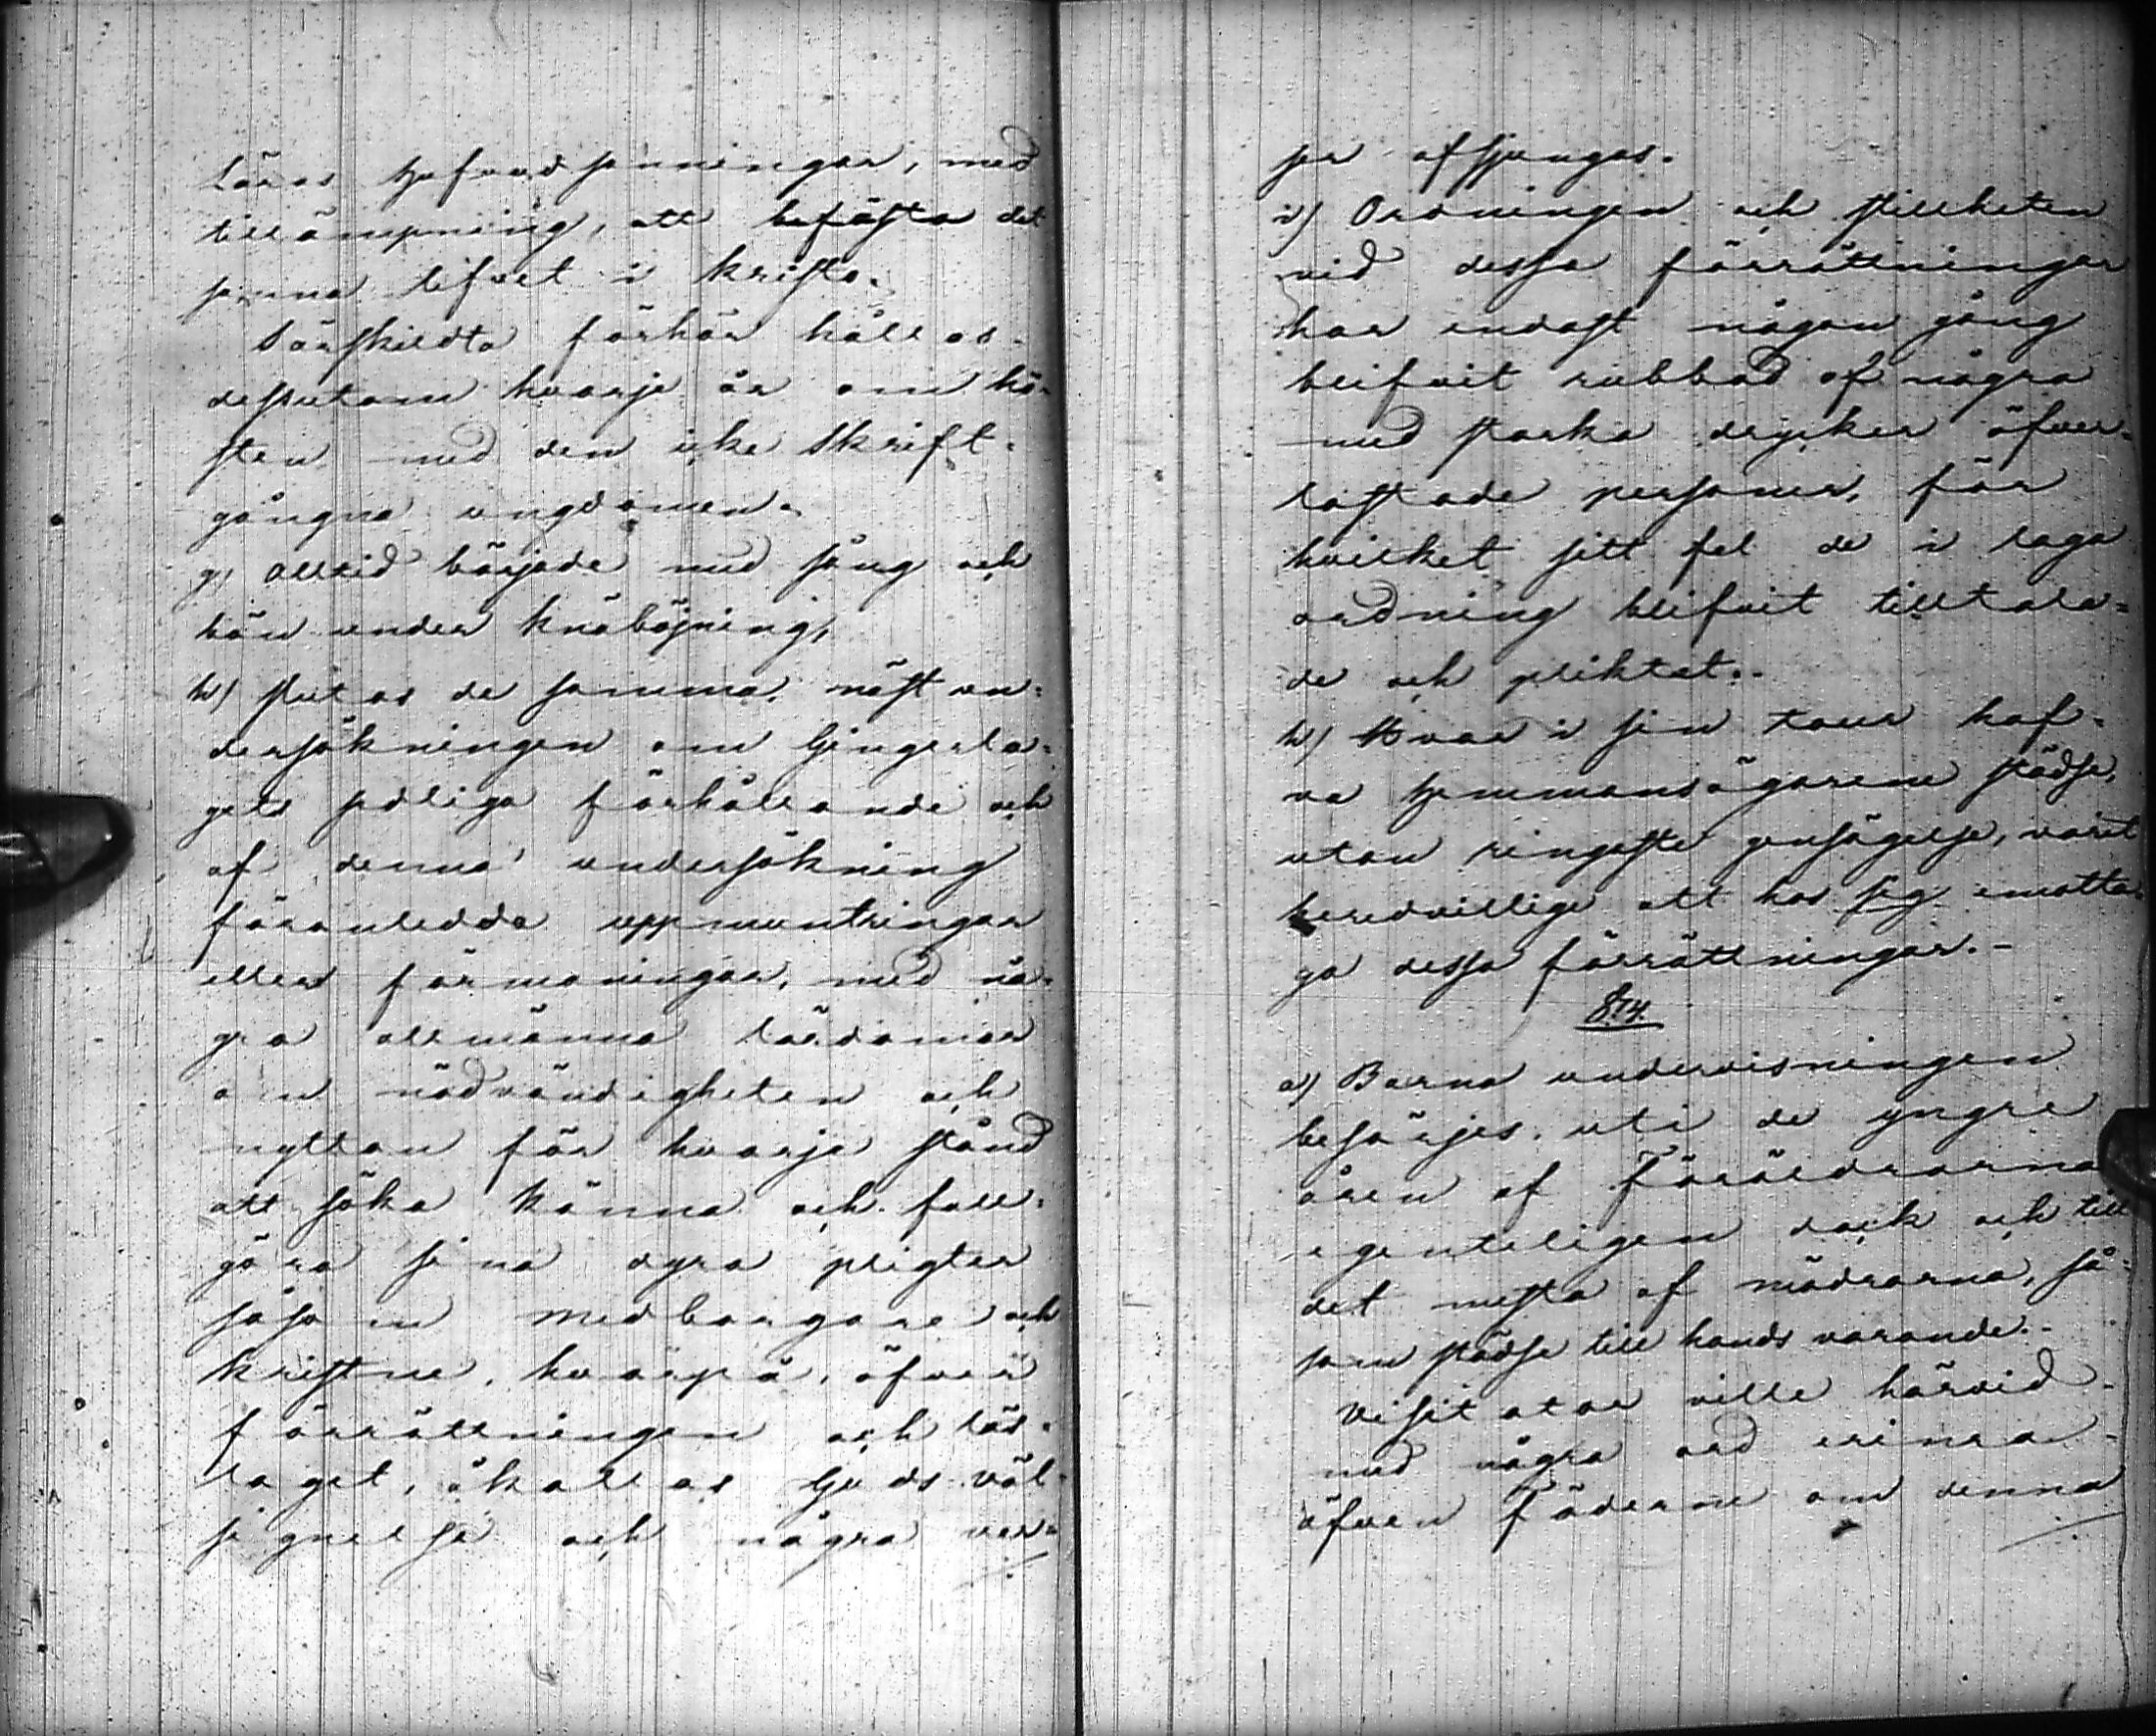 läras hufvudsanningar, med
tillämpning, att befästa det
sanna lifvet i Kristo.
Särskildta förhör hållas
dessutom hvarje år om hö-
sten med den icke Skrift-
gångna ungdomen.
g) Alltid började med sång och
bön under knäböjning,
h) slutas de samma, näst un-
dersökningen om Gingerla-
gets sedliga förhållande och
af denna undersökning
föranledda uppmuntringar
eller förmaningar, med nå-
gra allmänna lärdomar
om nödvändigheten och
nyttan för hvarje stånd
att söka känna och full-
göra sina dyra pligter
såsom medborgare och
kristne, hvarpå, öfver
förrättningen och läs-
laget, åkallas Guds väl-
signelse och några ver-
ser afsjungas.
i) Ordningen och stillheten
vid dessa förrättningar
har endast någon gång
blifvit rubbad af några
med starka drycker öfver-
lastade personer, för
hvilket sitt fel de i laga
ordning blifvit tilltala-
de och pliktat.-
k) Hvar i sin tour haf-
va hemmansägarene städse,
utan ringaste gensägelse, varit
beredvillige att hos sig emotta-
ga dessa förrättningar.-
§ 14.
a) Barna undervisningen
besörjes uti de yngre
åren af Föräldrarna
egenteligen dock och till
det mesta af mödrarna, så-
som städse till hands varande.-
Visitator ville härvid
med några ord erinra
äfven Fäderne om denna